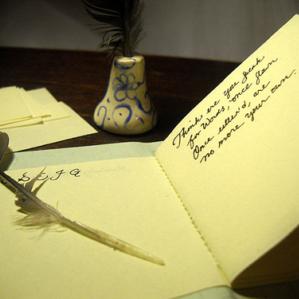 S L J A
Think ere you speak
for Words, once flown
Once utter'd, are
no more your own.